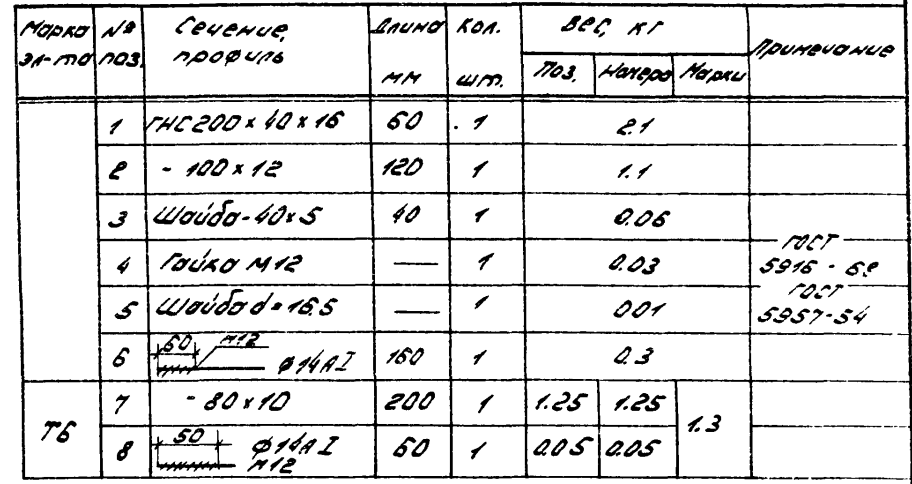 Марка эл-та № поз. Сечение, профиль Длина мм Кол. шт. Вес, кг Примечание
Поз. Номера Марки
1 ГНС 200 x 40 x 16 60 1 2.1
2 - 100 x 12 120 1 1.1
3 Шайба - 40 x 5 40 1 0.06
4 Гайка М12 — 1 0.03 ГОСТ 5916 - 62
5 Шайба d = 16.5 — 1 0.01 ГОСТ 5957-54
6 60 М12 ф 14 А I 160 1 0.3
Т6 7 - 80 x 10 200 1 1.25 1.25 1.3
8 50 ф 14 А I М12 60 1 0.05 0.05